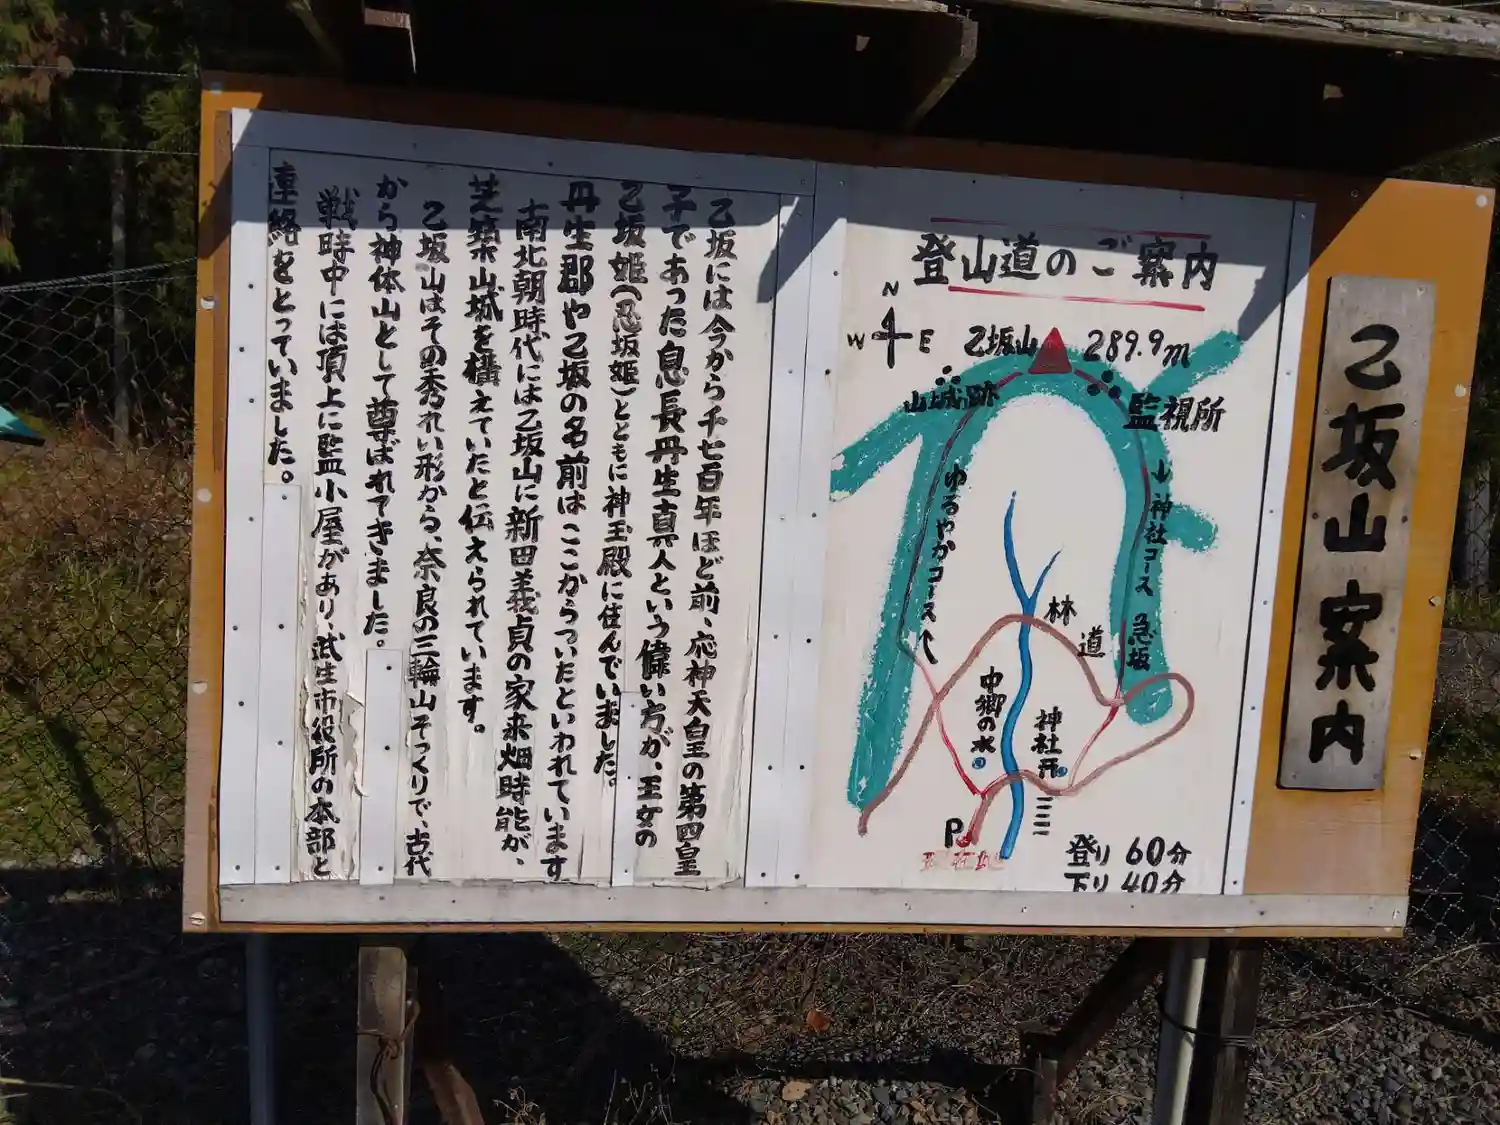 乙坂山案内
登山道のご案内
N
W
E
乙坂山
289.9m
山城跡
監視所
ゆるやかコース
神社コース
急坂
林道
中郷の水
神社
P
現在地
登り 60分
下り 40分
乙坂には今から千七百年ほど前、応神天皇の第四皇
子であった息長丹生真人という偉い方が、王女の
乙坂姫(忍坂姫)とともに神玉殿に住んでいました。
丹生郡や乙坂の名前はここからついたといわれています
南北朝時代には乙坂山に新田義貞の家来畑時能が、
芝築山城を構えていたと伝えられています。
乙坂山はその秀れい形から、奈良の三輪山そっくりで、古代
から神体山として尊ばれてきました。
戦時中には頂上に監小屋があり、武生市役所の本部と
連絡をとっていました。